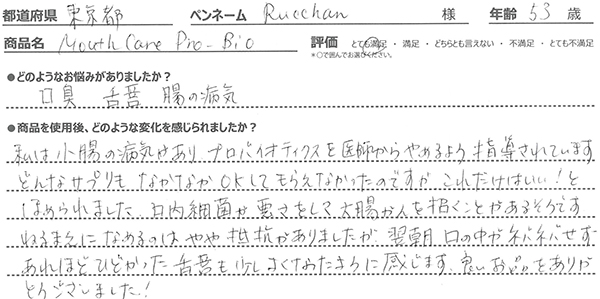 都道府県 東京都 ペンネーム Rucchan 様 年齢 53 歳
商品名 Mouth Care Pro-Bio 評価 とても満足・満足・どちらとも言えない・不満足・とても不満足
*○で囲んでお選びください。
●どのようなお悩みがありましたか?
口臭 舌苔 腸の病気
●商品を使用後、どのような変化を感じられましたか?
私は小腸の病気があり プロバイオティクスを医師からやめるよう指導されています
どんなサプリも なかなかOKしてもらえなかったのですが これだけはいい!と
ほめられました 口内細菌が悪さをして 大腸がんを招くことがあるそうです
ねるまえになめるのは やや抵抗がありましたが 翌朝 口の中がネバネバせず
あれほどひどかった舌苔も少しよくなったように感じます。良いお品をありが
とうございました!